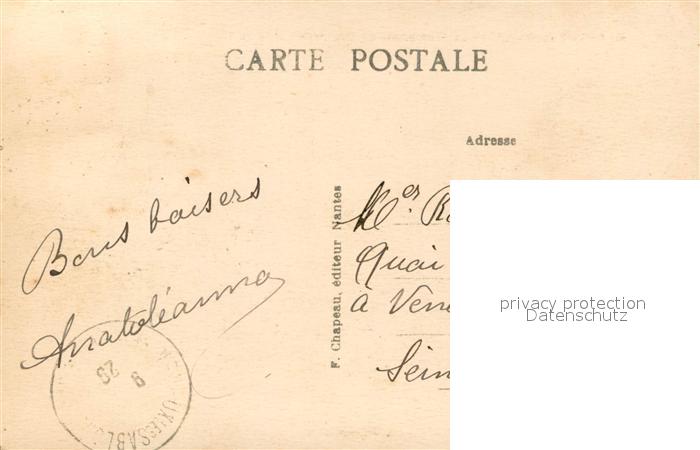 CARTE POSTALE
Adresse
Bons baisers
Anatoléanna
F. Chapeau, éditeur Nantes
Quai
à Vene
Sein
privacy protection
Datenschutz